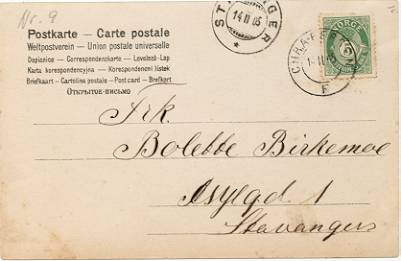 Nr. 9
Postkarte — Carte postale
Weltpostverein — Union postale universelle
Dopisnice — Correspondenzkarte — Levelezö-Lap
Karta korespondencyjna — Korespondenčni listek
Brefkaart — Cartolina postale — Post card — Brefkort
Открытое-письмо
14 II 05
NORGE
5
F
Frk.
Bolette Birkemoe
Asylgd. 1
Stavanger